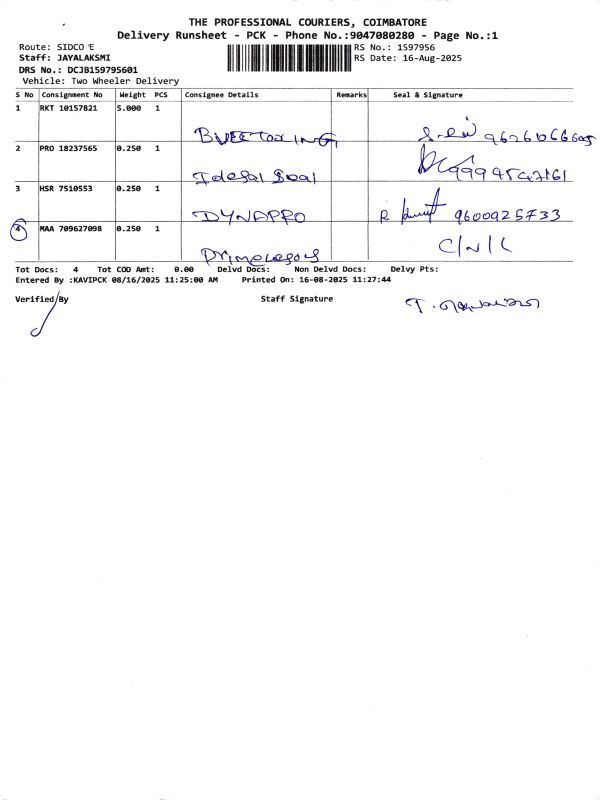 THE PROFESSIONAL COURIERS, COIMBATORE
Delivery Runsheet - PCK - Phone No.:9047080280 - Page No.:1
Route: SIDCO E RS No.: 1597956
Staff: JAYALAKSMI RS Date: 16-Aug-2025
DRS No.: DCJB159795601
Vehicle: Two Wheeler Delivery
S No Consignment No Weight PCS Consignee Details Remarks Seal & Signature
1 RKT 10157821 5.000 1
9626106660
2 PRO 18237565 0.250 1
Ideal Seal
3 HSR 7510553 0.250 1
DYNAPRO R. 9600925733
4 MAA 709627098 0.250 1
C/N/L
Tot Docs: 4 Tot COD Amt: 0.00 Delvd Docs: Non Delvd Docs: Delvy Pts:
Entered By :KAVIPCK 08/16/2025 11:25:00 AM Printed On: 16-08-2025 11:27:44
Verified By Staff Signature